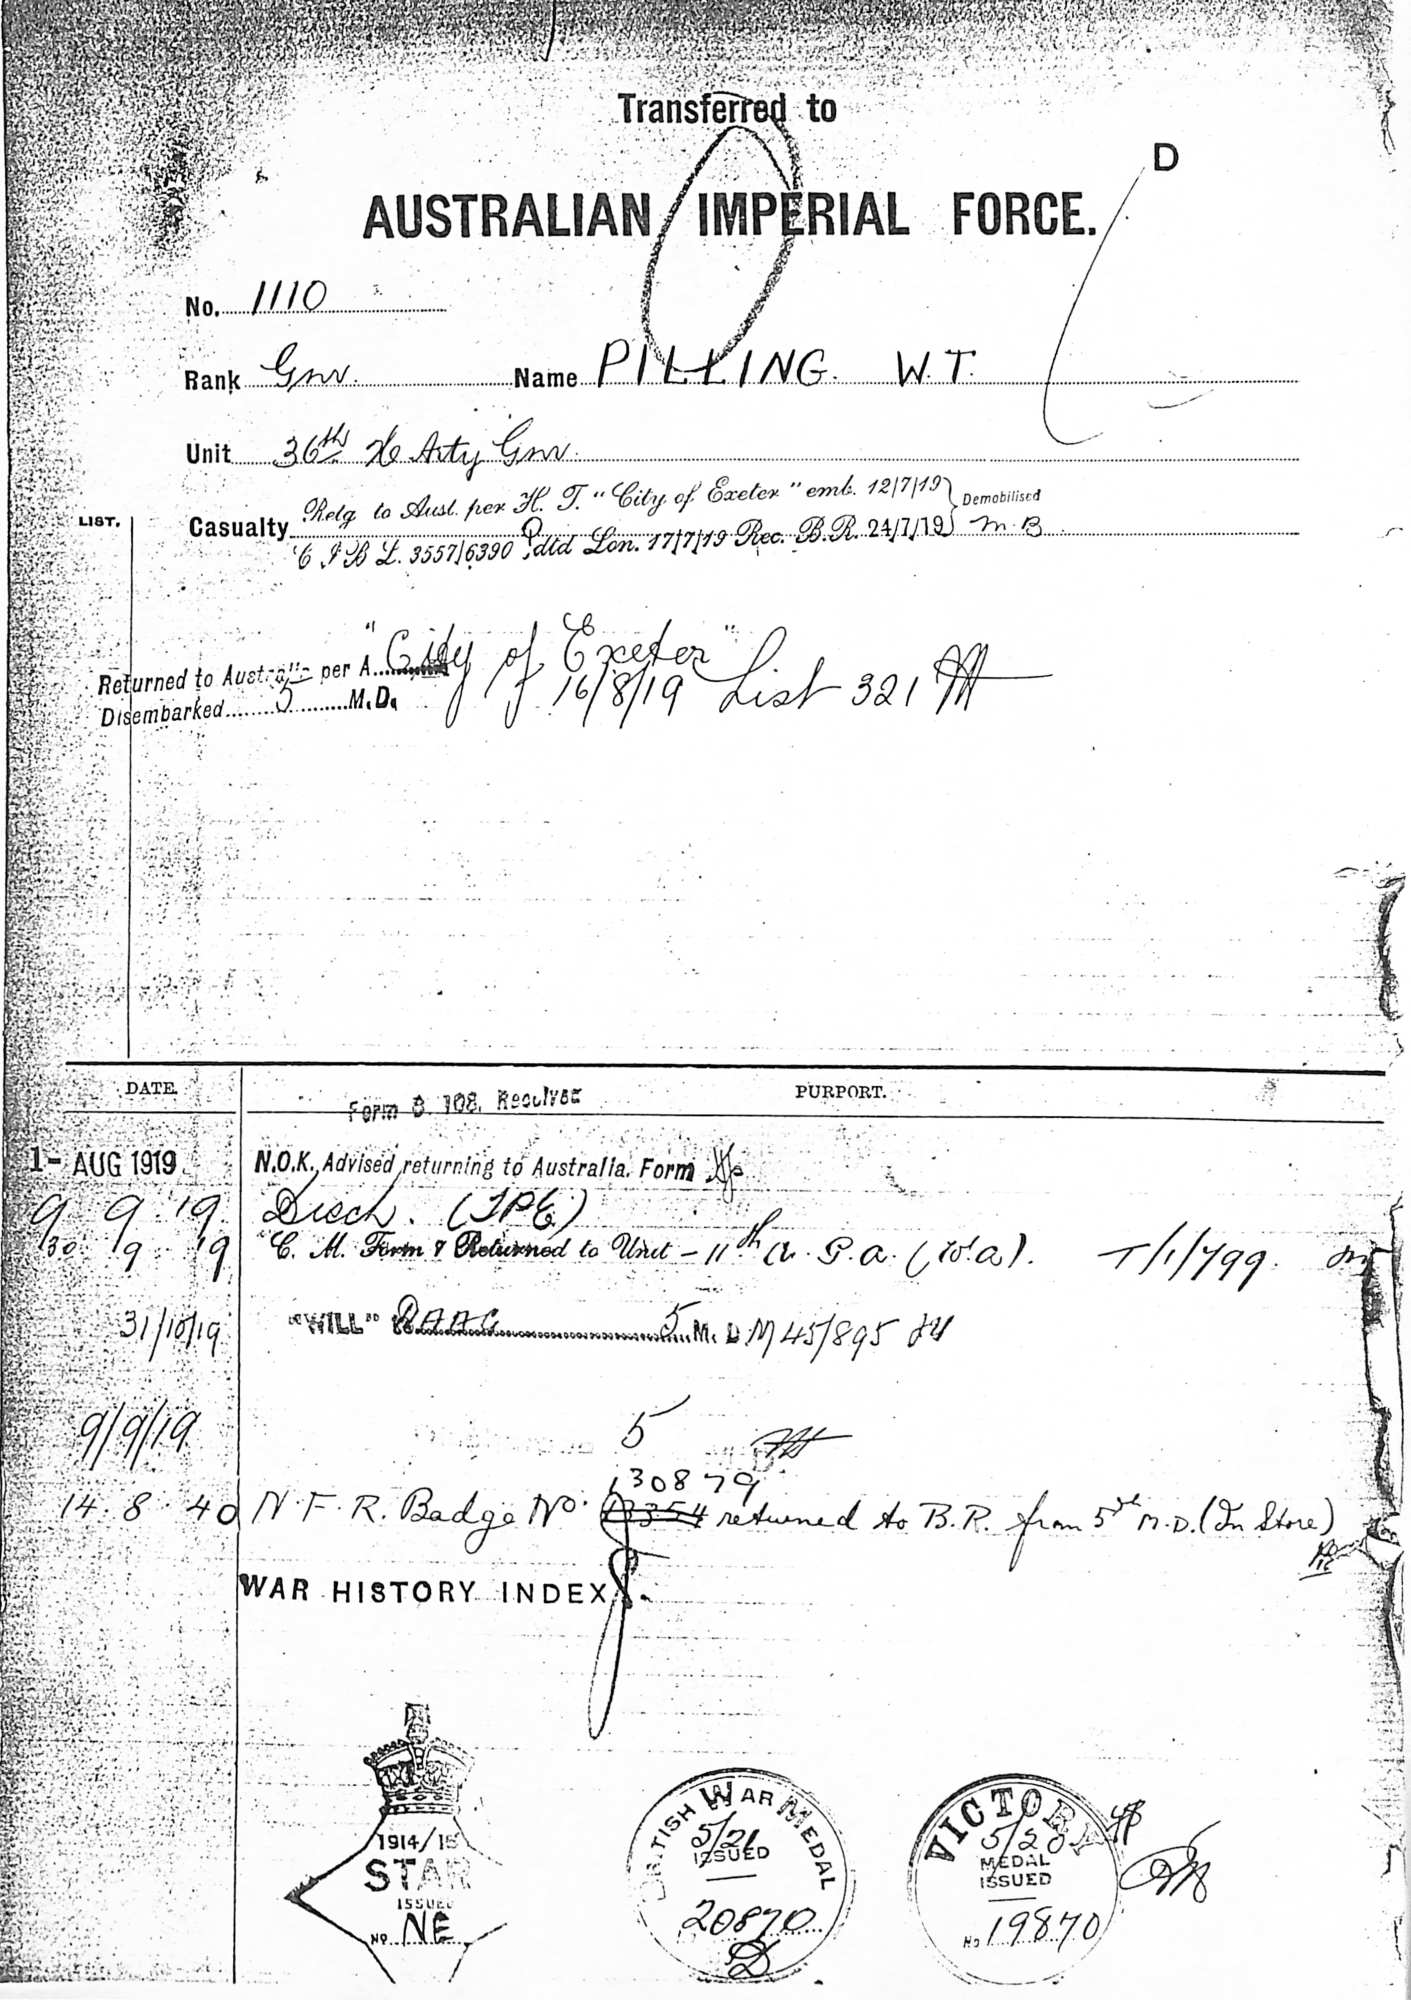 Transferred to
D
AUSTRALIAN IMPERIAL FORCE.
No. 1110
Rank Gnr. Name PILLING. W.T.
Unit 36th H Arty Gnr.
LIST.
Casualty Retg to Aust. per H. T. "City of Exeter" emb. 12/7/19 Demobilised
C I B L. 3557/6390 dtd Lon. 17/7/19 Rec. B.R. 24/7/19 M.B
Returned to Australia per A "City of Exeter"
Disembarked 5 M.D. 16/8/19 List 321
DATE. PURPORT.
Form B. 108. Received
1- AUG 1919 N.O.K. Advised returning to Australia. Form
9 9 19 Disch. (TPE)
30 9 19 C. M. Form & Returned to Unit - 11th A. G. A. (W.A). T/1/799.
31/10/19 "WILL" to 5 M. D M45/895
9/9/19 5
130879
14. 8. 40 N. F. R. Badge No. 13354 returned to B.R. from 5th M.D. (In Store)
WAR HISTORY INDEX.
1914/15
STAR
ISSUED
No NE
BRITISH WAR MEDAL
5/21
ISSUED
20870
VICTORY
5/20
MEDAL
ISSUED
No 19870